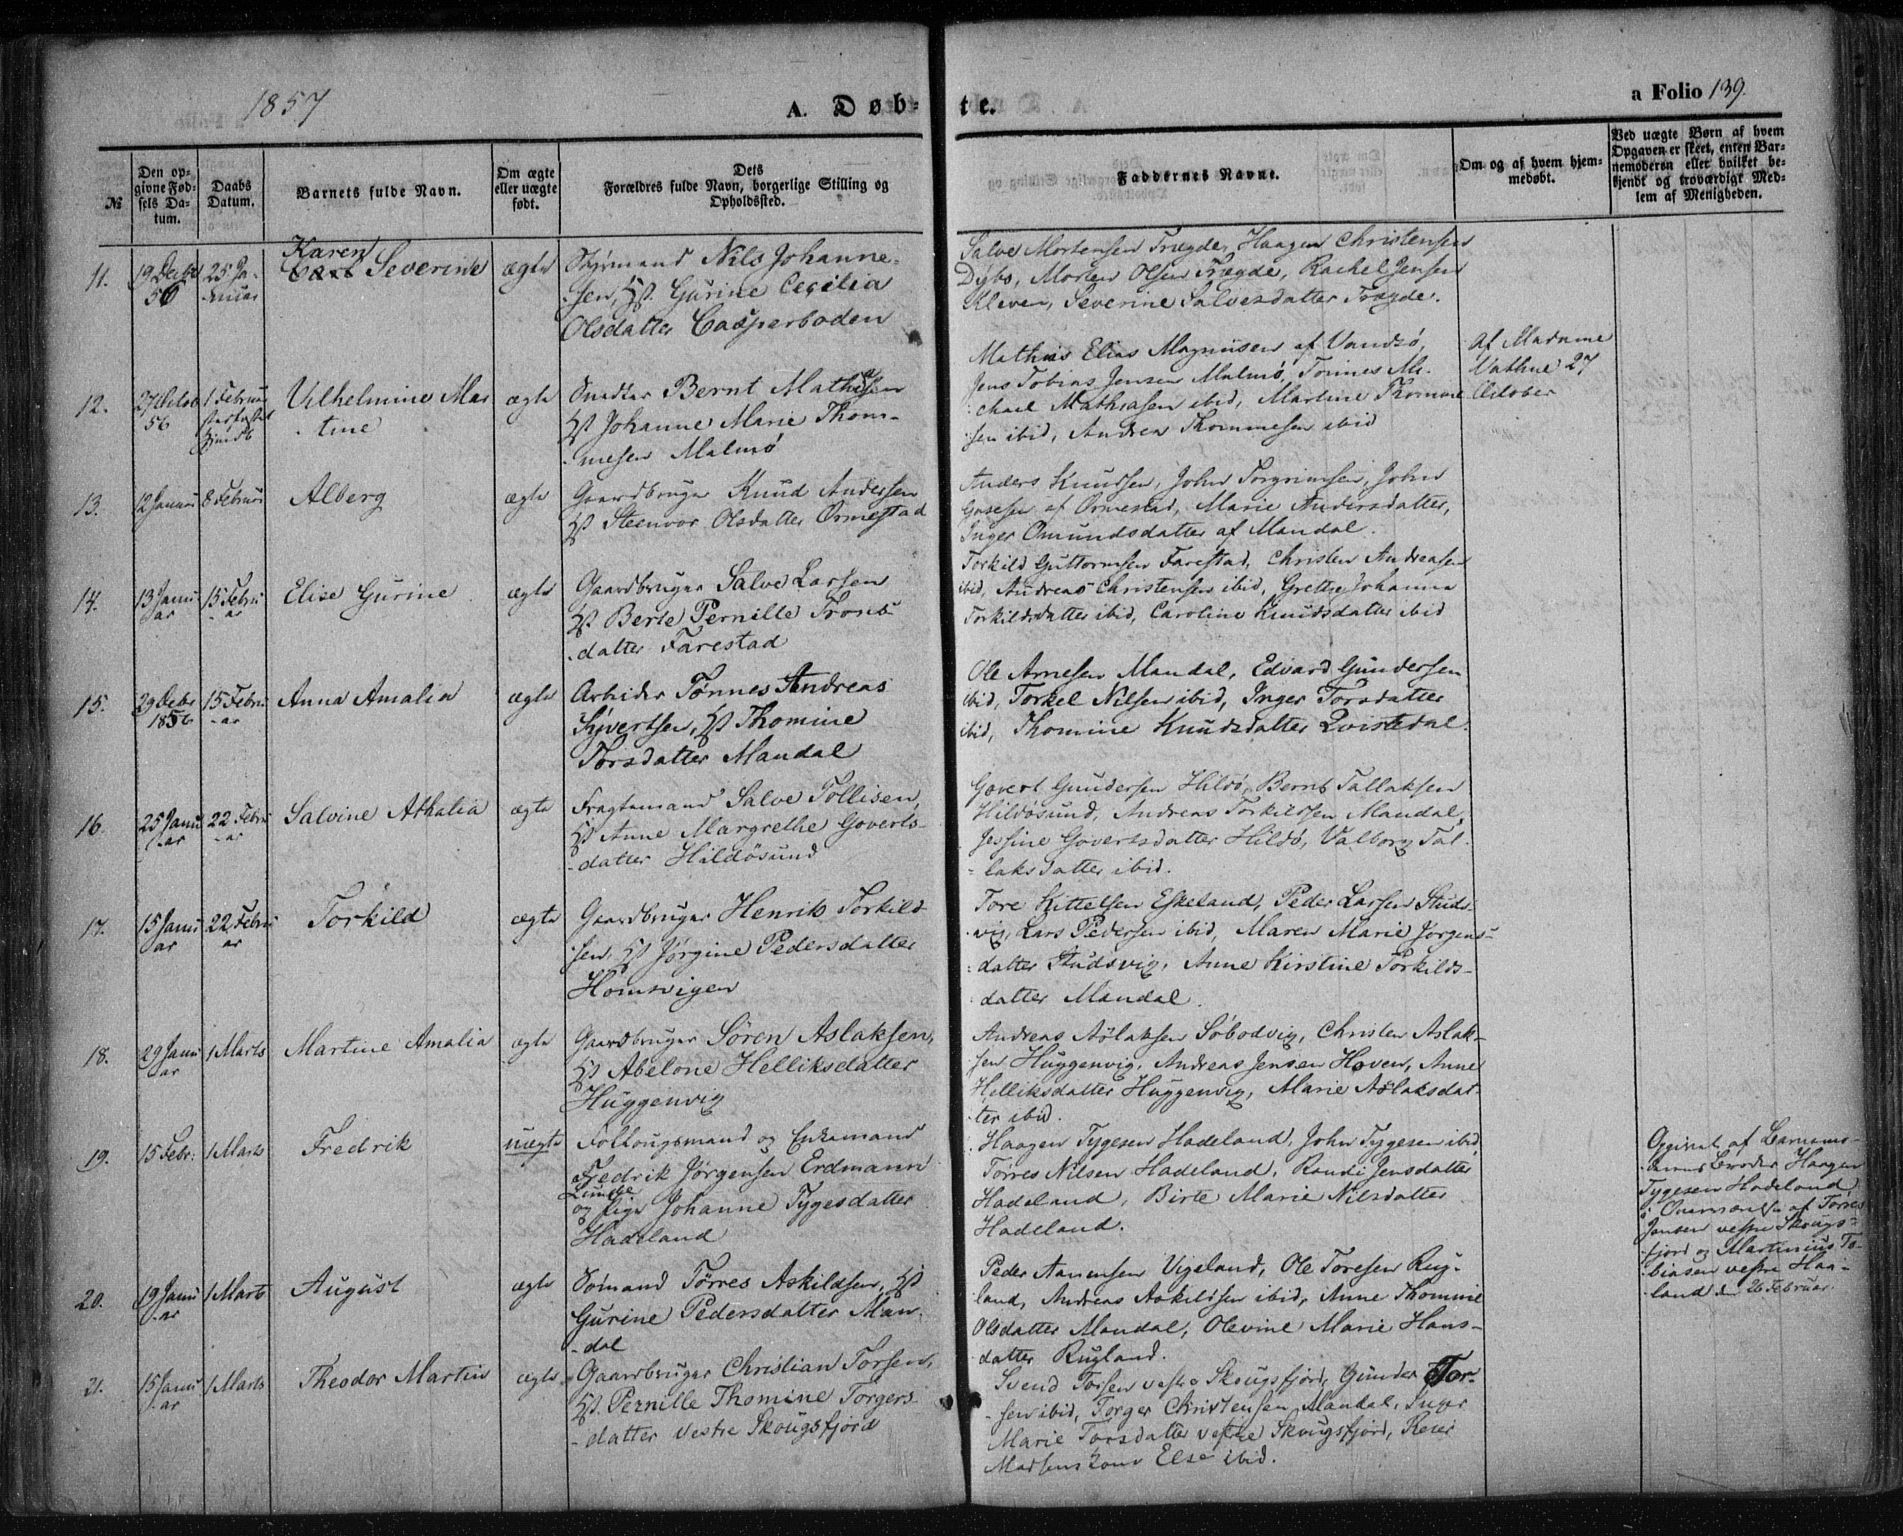 1857
A. Døb-
te.
a Folio 139.
№
Den op-
givne Fød-
sels Da-
tum.
Daabs
Datum.
Barnets fulde Navn.
Om ægte
eller uægte
født.
Dets
Forældres fulde Navn, borgerlige Stilling og
Opholdssted.
Faddernes Navne.
Om og af hvem hjem-
medøbt.
Ved uægte Børn af hvem
Opgaven er skeet, enten Bar-
nemoderen eller hvilket be-
kjendt og troværdigt Med-
lem af Menigheden.
11.
19 Decbr
56
25 Ja-
nuar
Karen
Severine
ægte
Styrmand Nils Johanne-
sen, Hst. Gurine Cecilia
Olsdatter Casperboden
Salve Mortensen Trægde, Haagen Christensen
Dybo, Morten Olsen Trægde, Rachel Jensen
Kleven, Severine Salvesdatter Trægde.
12.
27 Octob
56
1 Februar
Vilhelmine Mar
tine
ægte
Snedker Bernt Mathisen
Hst Johanne Marie Thom-
mesen Malmö
Mathias Elias Magnusen af Vandsø,
Jens Tobias Jensen Malmö, Tönnes Mi-
chael Mathiasen ibid, Martine Thomme
sen ibid, Andrea Thommesen ibid
Af Madame
Vathne 27
October
13.
12 Januar
8 Februar
Alberg
ægte
Gaardbruger Knud Andersen
Hst Steenvor Olsdatter Ormestad
Anders Knudsen, John Torgrimsen, John
Gosesen af Ormestad, Marie Andersdatter,
Inger Omundsdatter af Mandal.
14.
13 Janu
ar
15 Febru
ar
Elise Gurine
ægte
Gaardbruger Salve Larsen
Hst Berte Pernille Trons-
datter Farestad
Torkild Guttormsen Farestad, Christen Andreasen
ibid, Andreas Christensen ibid, Grethe Johanna
Torkildsdatter ibid, Caroline Knudsdatter ibid
15.
29 Decbr
1856
15 Febru
ar
Anna Amalia
ægte
Arbeider Tønnes Andreas
Syvertsen, Hst Thomine
Torsdatter Mandal
Ole Arnesen Mandal, Edvard Gundersen
ibid, Torkel Nilsen ibid, Inger Torsdatter
ibid, Thomine Knudsdatter Qvisledal.
16.
25 Janu
ar
22 Febru
ar
Salvine Athalia
ægte
Fragtemand Salve Tollisen,
Hst Anne Margrethe Goverts-
datter Hildösund
Govert Gundersen Hildö, Bernt Tallaksen
Hildösund, Andreas Torkildsen Mandal,
Jessine Govertsdatter Hildö, Valborg Tal-
laksdatter ibid.
17.
15 Janu
ar
22 Febru
ar
Torkild
ægte
Gaardbruger Henrik Torkild-
sen, Hst Jørgine Pedersdatter
Homsvigen
Tore Kittelsen Eskeland, Peder Larsen Studs-
vig, Lars Pedersen ibid, Maren Marie Jørgens-
datter Studsvig, Anne Kirstine Torkilds-
datter Mandal.
18.
29 Janu
ar
1 Marts
Martine Amalia
ægte
Gaardbruger Sören Aslaksen,
Hst Abelone Helliksdatter
Huggenvig
Andreas Aslaksen Söbodvig, Christen Aslak-
sen Huggenvig, Andreas Jensen Hoven, Anne
Helliksdatter Huggenvig, Marie Aslaksdat-
ter ibid.
19.
15 Febr:
1 Marts
Fredrik
uægte
Follougsmand og Enkemand
Fredrik Jørgensen Erdmann
Lunde
og Pige Johanne Tygesdatter
Hadeland
Haagen Tygesen Hadeland, John Tygesen ibid,
Törres Nilsen Hadeland, Randi Jensdatter
Hadeland, Birte Marie Nilsdatter
Hadeland.
Opgivet af Barnemo-
derens Broder Haagen
Tygesen Hadeland,
i Overværelse af Torres
Jensen vestre Skougs-
fjord og Martinius To-
biasen vestre Haa-
land den 26 Februar.
20.
19 Janu
ar
1 Marts
August
ægte
Sömand Törres Askildsen, Hst
Gurine Pedersdatter Man-
dal
Peder Aanensen Vigeland, Ole Toresen Rug-
land, Andreas Askildsen ibid, Anne Thomine
Olsdatter Mandal, Olevine Marie Hans-
datter Rugland.
21.
15 Janu
ar
1 Marts
Theodor Martin
ægte
Gaardbruger Christian Torsen,
Hst. Pernille Thomine Torgers-
datter vestre Skougsfjord
Svend Torsen vestre Skougsfjord, Gunder Tor-
sen ibid, Torger Christensen Mandal, Inger
Marie Torsdatter vestre Skougsfjord, Reier
Madsens Kone Else ibid.